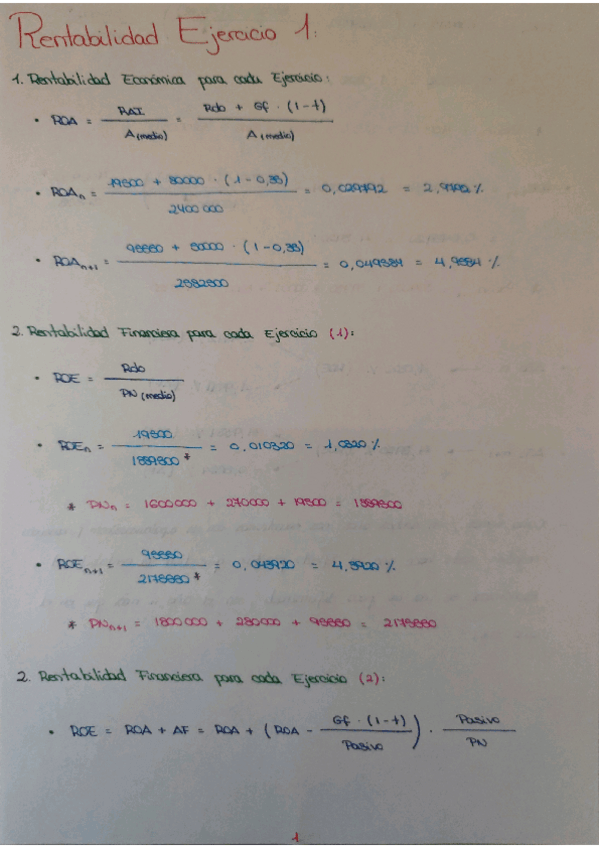 Rentabilidad Ejercicio 1:
1. Rentabilidad Económica para cada Ejercicio:
• ROA = RAI / A (medio) = Rdo + Gf · (1-t) / A (medio)
• ROAn = 19500 + 80000 · (1-0,35) / 2400 000 = 0,029792 = 2,9792 %
• ROAn+1 = 95550 + 50000 · (1-0,35) / 2582500 = 0,049584 = 4,9584 %
2. Rentabilidad Financiera para cada Ejercicio (1):
• ROE = Rdo / PN (medio)
• ROEn = 19500 / 1889500 * = 0,010320 = 1,0320 %
* PNn = 1600000 + 270000 + 19500 = 1889500
• ROEn+1 = 95550 / 2175550 * = 0,043920 = 4,3920 %
* PNn+1 = 1800000 + 280000 + 95550 = 2175550
2. Rentabilidad Financiera para cada Ejercicio (2):
• ROE = ROA + AF = ROA + (ROA - Gf · (1-t) / Pasivo) · Pasivo / PN
1